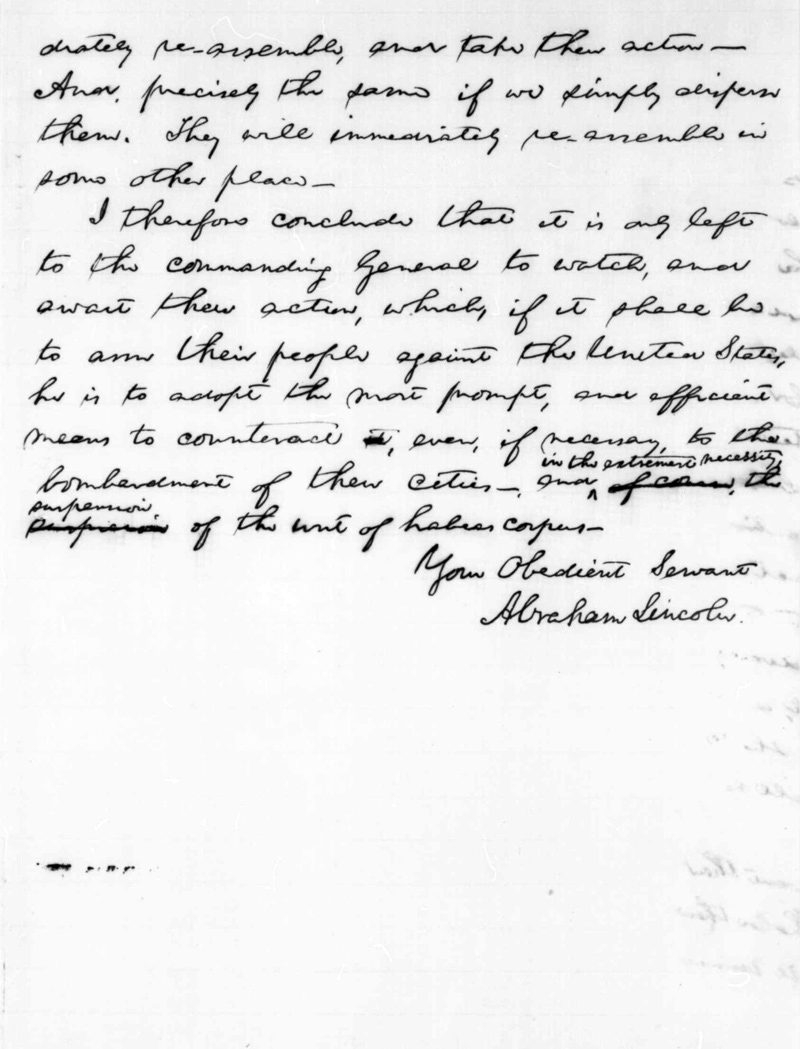 diately re-assemble, and take their action—
And, precisely the same if we simply disperse
them. They will immediately re-assemble in
some other place—
I therefore conclude that it is only left
to the commanding General to watch, and
await their action, which, if it shall be
to arm their people against the United States,
he is to adopt the most prompt, and efficient
means to counteract it, even, if necessary, to the
in the extremest necessity,
bombardment of their cities—, and of course, the
suspension
suspension of the writ of habeas corpus—
Your Obedient Servant
Abraham Lincoln.